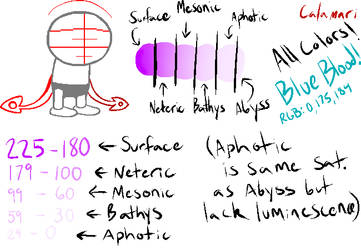 Mesonic
Surface Aphotic
Neteric Bathys Abyss
Calamari
All Colors!
Blue Blood!
RGB: 0,175,184
225-180 ← Surface
179-100 ← Neteric
99 - 60 ← Mesonic
59 - 30 ← Bathys
29 - 0 ← Aphotic
(Aphotic
is same Sat.
as Abyss but
lack luminescence)